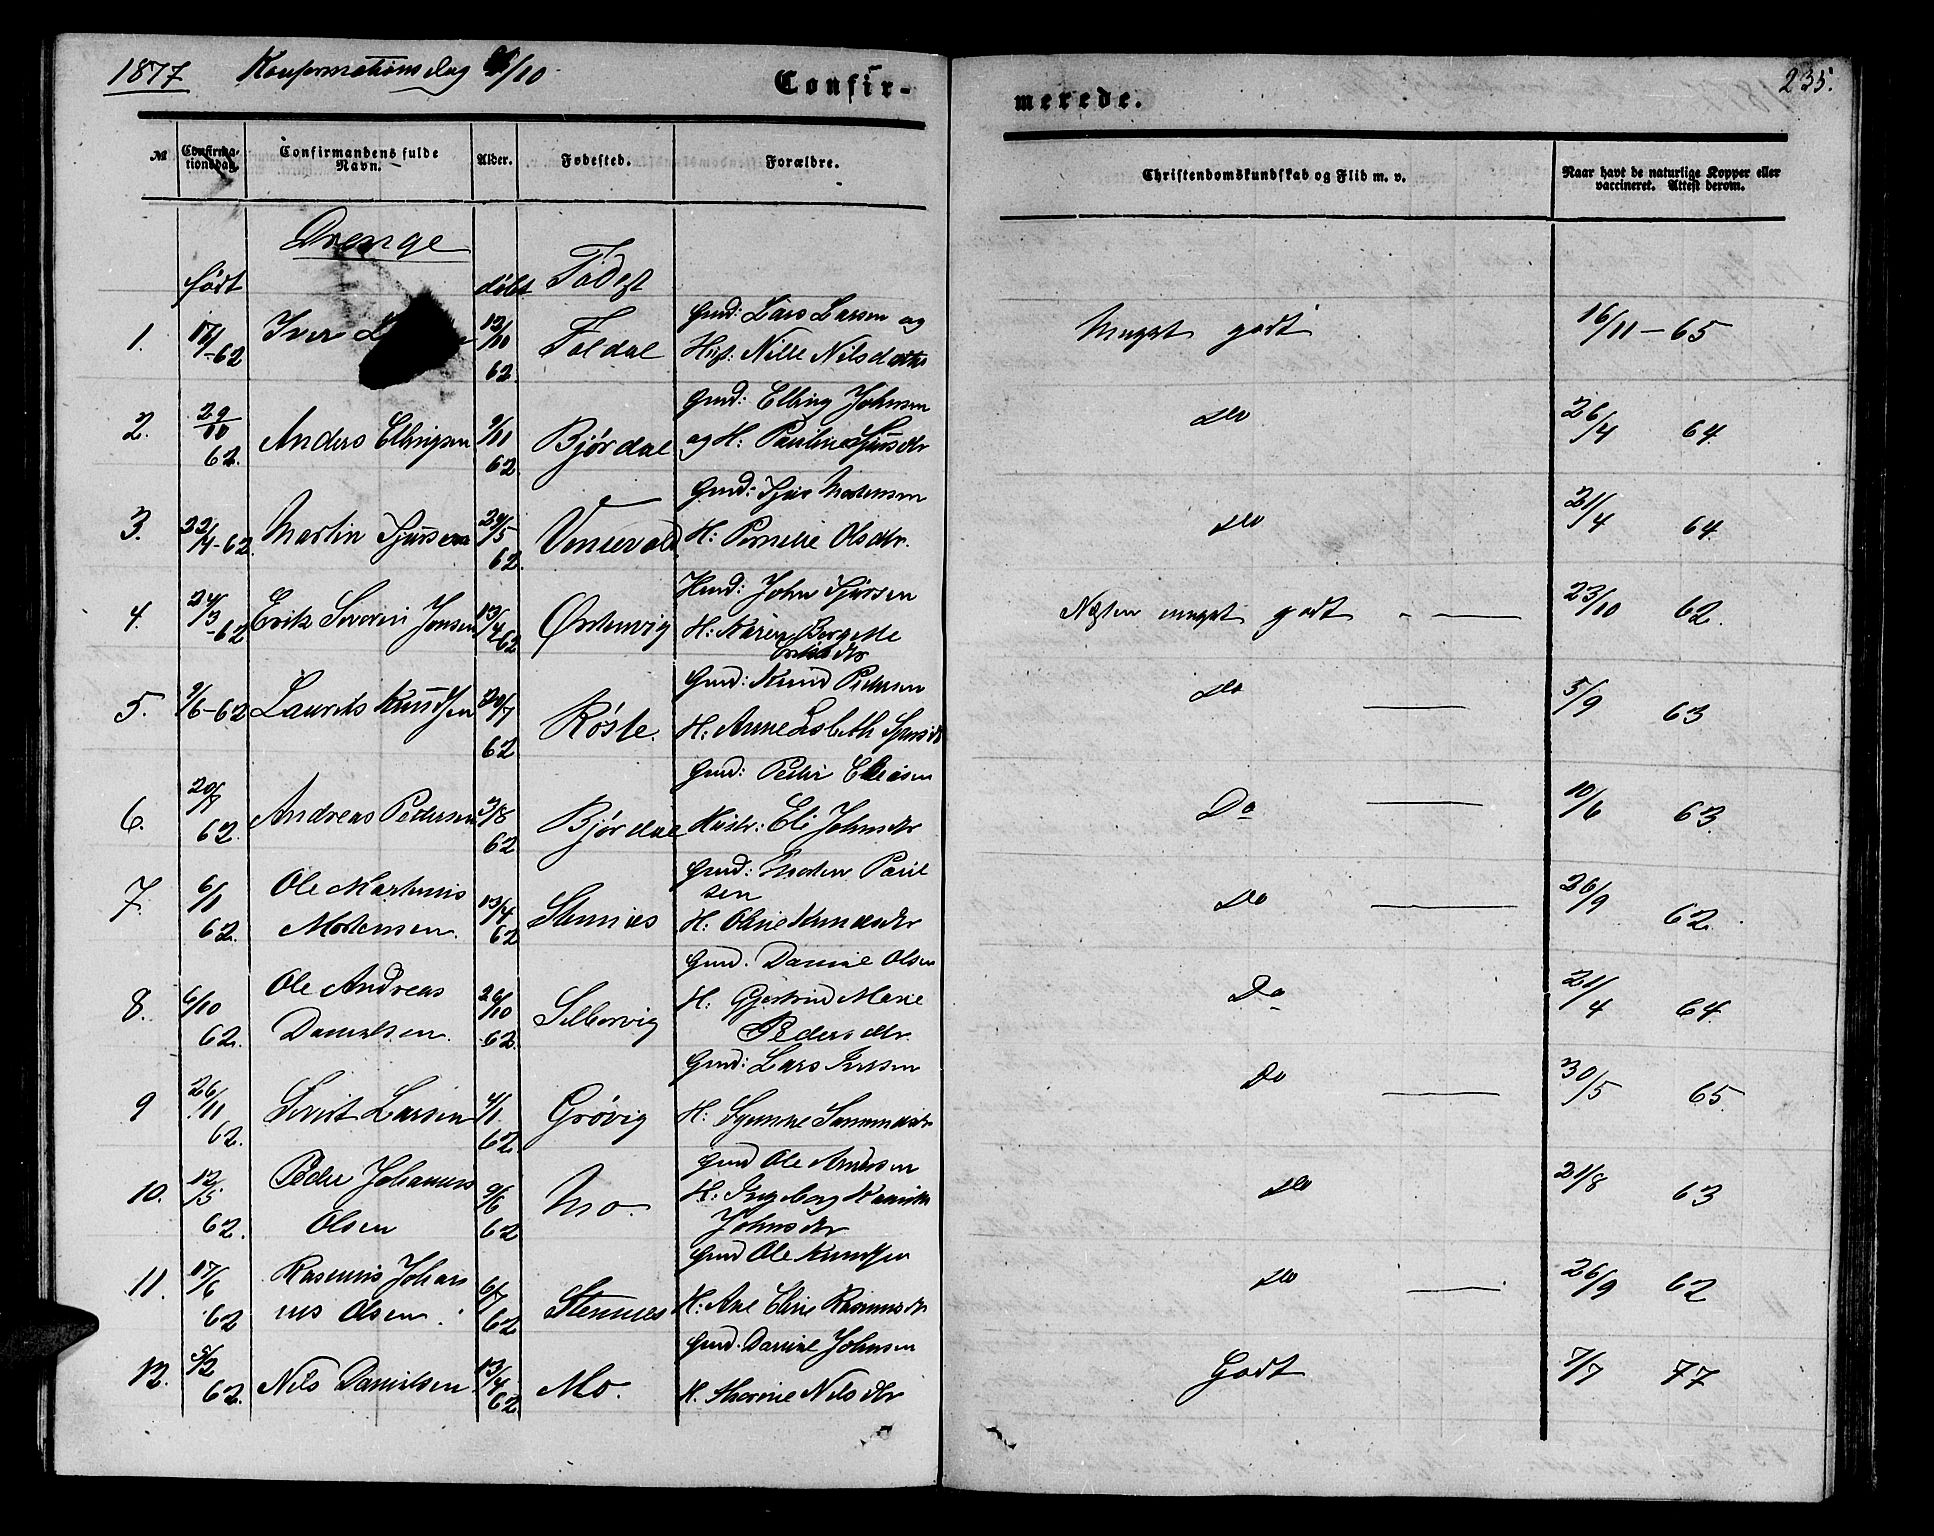 1877 Konfirmationsdag /10
Confir-
merede.
235.
№
Confirma-
tionsdag.
Confirmandens fulde
Navn.
Alder.
Fødested.
Forældre.
Christendomskundskab og Flid m. v.
Naar havt de naturlige Kopper eller
vaccineret. Attest derom.
Drenge
født
døbt
Födest
Gmd: Lars Larsen og
1. -62 Iver 12/10 Foldal Hust: Nille Nilsdatter Meget godt 16/11-65
62.
Gmd: Elling Johnsen
2. 29/10 Anders Ellingsen 9/11 Bjørdal og H: Pauline Sjursdtr Do 26/4 64.
62. 62
Gmd: Sjur Mortensen
3. 22/4-62. Martin Sjursen 29/5 H: Pernille Olsdtr. Do 21/4 64.
62.
Gmd: John Sjursen
4. 24/3 -62 Erik Severin Jonsen 13/4-62 Ørstenvig H: Karen Bergitte Næsten meget godt 23/10 62.
Eriksdtr
Gmd: Knud Pedersen
5. 9/6-62 Laurits Knudsen 20/7 Røste. H: Anne Lisbeth Sjursdtr Do 5/9 63
62
Gmd: Peder Eliasen
6. 20/7 Andreas Pedersen 3/8 Bjørdal Hustr: Eli Johnsdtr Do 10/6 63.
62. 62
Gmd: Morten Paul
sen
7. 6/1 Ole Martinus 13/4 Stennes H: Oline Knudsdtr Do 26/9 62.
62. Mortensen. 62
Gmd. Daniel Olsen
8. 6/10 Ole Andreas 26/10 Selbervig H: Gjertrud Marie Do 21/4 64.
62. Danielsen. 62. Pedersdtr.
Gmd: Lars Iversen
9 26/11 Sivert Larsen 4/1 Grøvig H: Do 30/5 65.
62. 62.
Gmd Ole Andersen
10. 12/5 Peder Johannes 9/6 Mo. H: Ingeborg Do 21/8 63
62. Olsen 62 Johnsdtr
Gmd Ole Knudsen
11. 17/6 Rasmus Johan 6/7 Stennes H: Ane Eline Rasmusdtr Do 26/9 62
62 nes Olsen. 62
Gmd. Daniel Johnsen
12. 5/2 Nils Danielsen 13/4 Mo. H. Nilsdtr Godt 7/7 77
62. 62